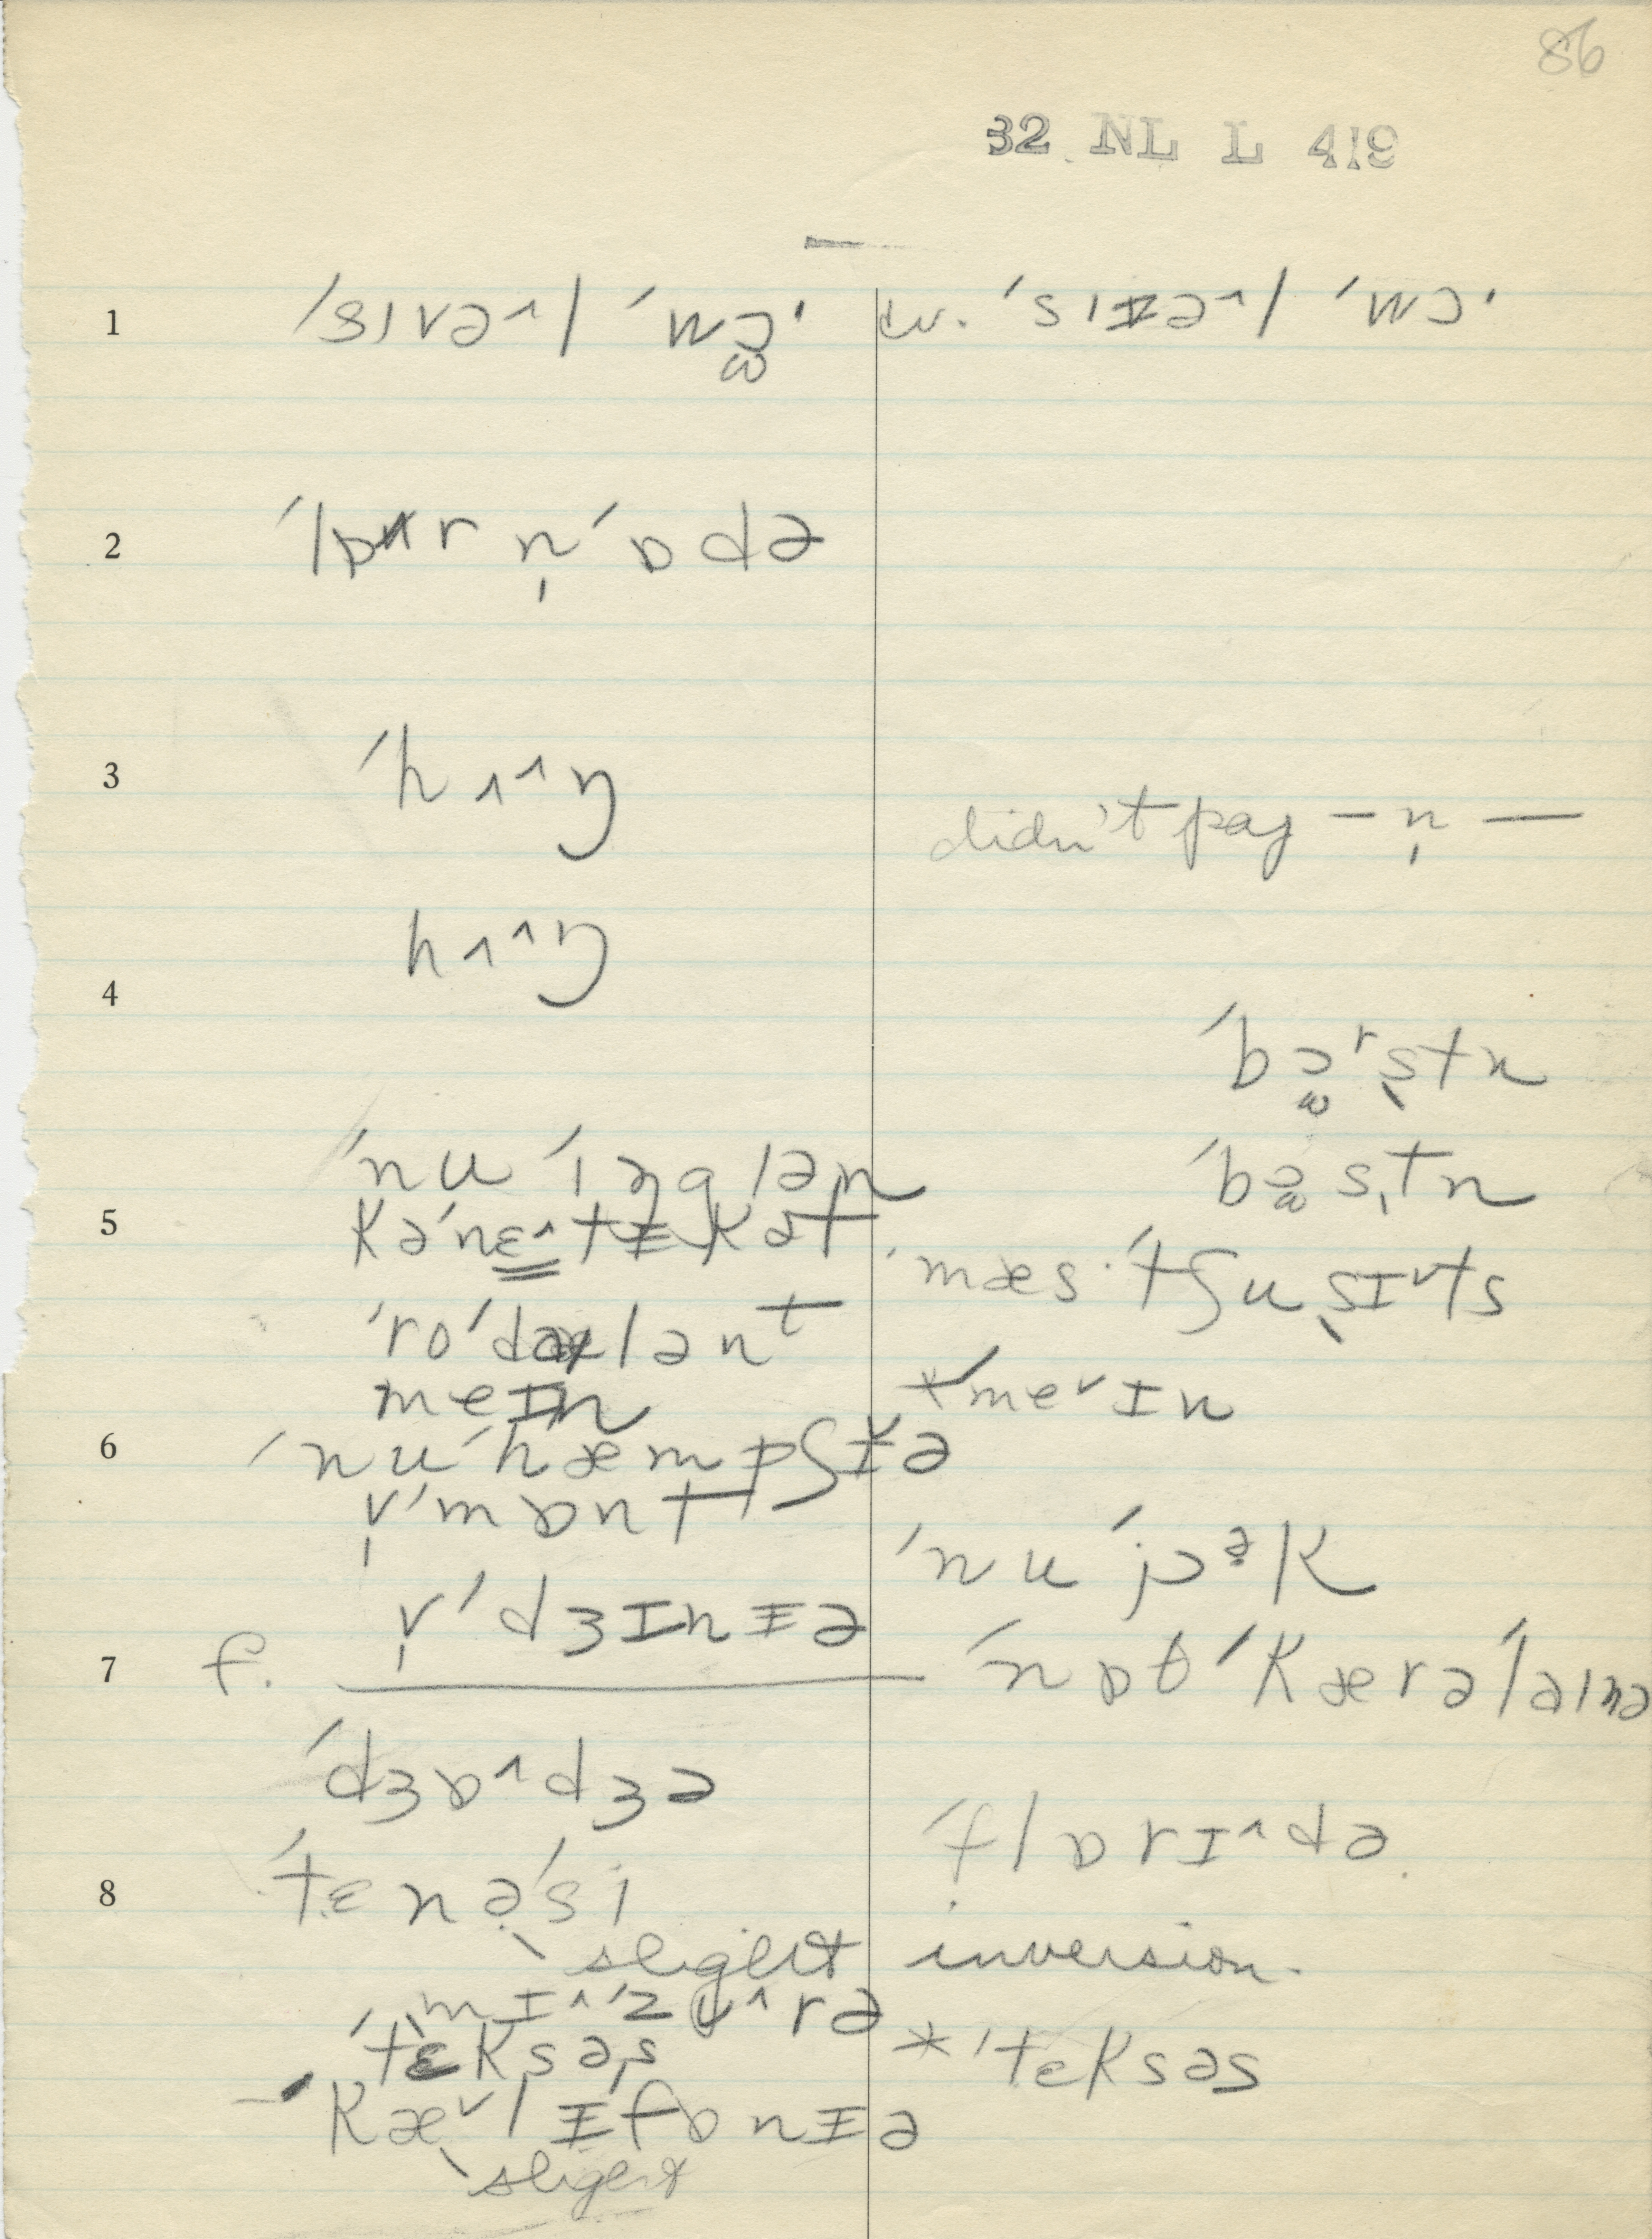 86
32 NL L 419
1 ˈsɪvə^l ˈwɔ̫ˑ
cv. ˈsɪɨə^l ˈwɔˑ
2 ˈlɒr n̩ ˈɒdə
3 ˈhʌ^ŋ
didn't pay — n̩ —
4 hʌ^ŋ
ˈbɔ̫ʳstn
ˈnu ˈɪŋglən
ˈbɔ̫stn
5 kəˈnɛ^tɨkət
ˈmæsˑˈtʃusɪᵛts
ˈroˈdələnᵗ
meɪn
*ˈmeᵛɪn
6 ˈnuˈhæmpʃɨᵛə
v̩ˈmɒnt
ˈnuˈjɔᵊk
v̩ˈdʒɪnɨə
7 f.
ˈnɒθˈkærəˈlaɪnə
ˈdʒɒ^dʒə
ˈflɒrɪ^də
8 ˈtɛnəˈsi
slight inversion.
mɪ^ˈzʊ^rə
ˈtɛksəs
*ˈtɛksəs
ˈkæᵛlɨfɒnɨə
slight